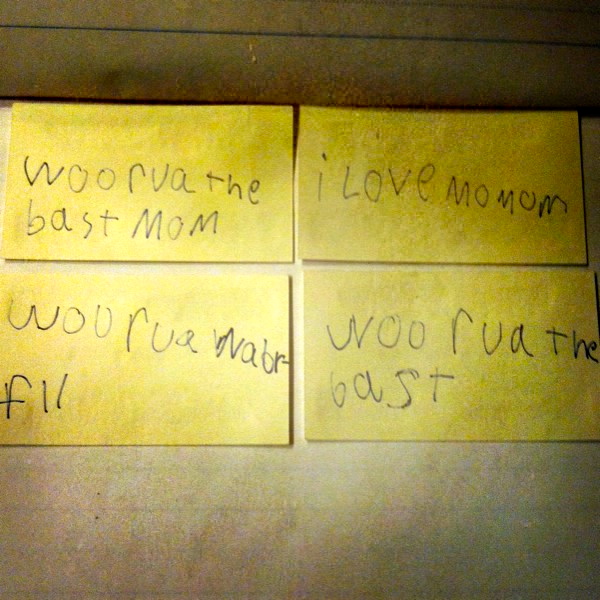 woo rua the
bast MOM
i LOVe MoMoM
woo rua wabr-
fil
woo rua the
bast